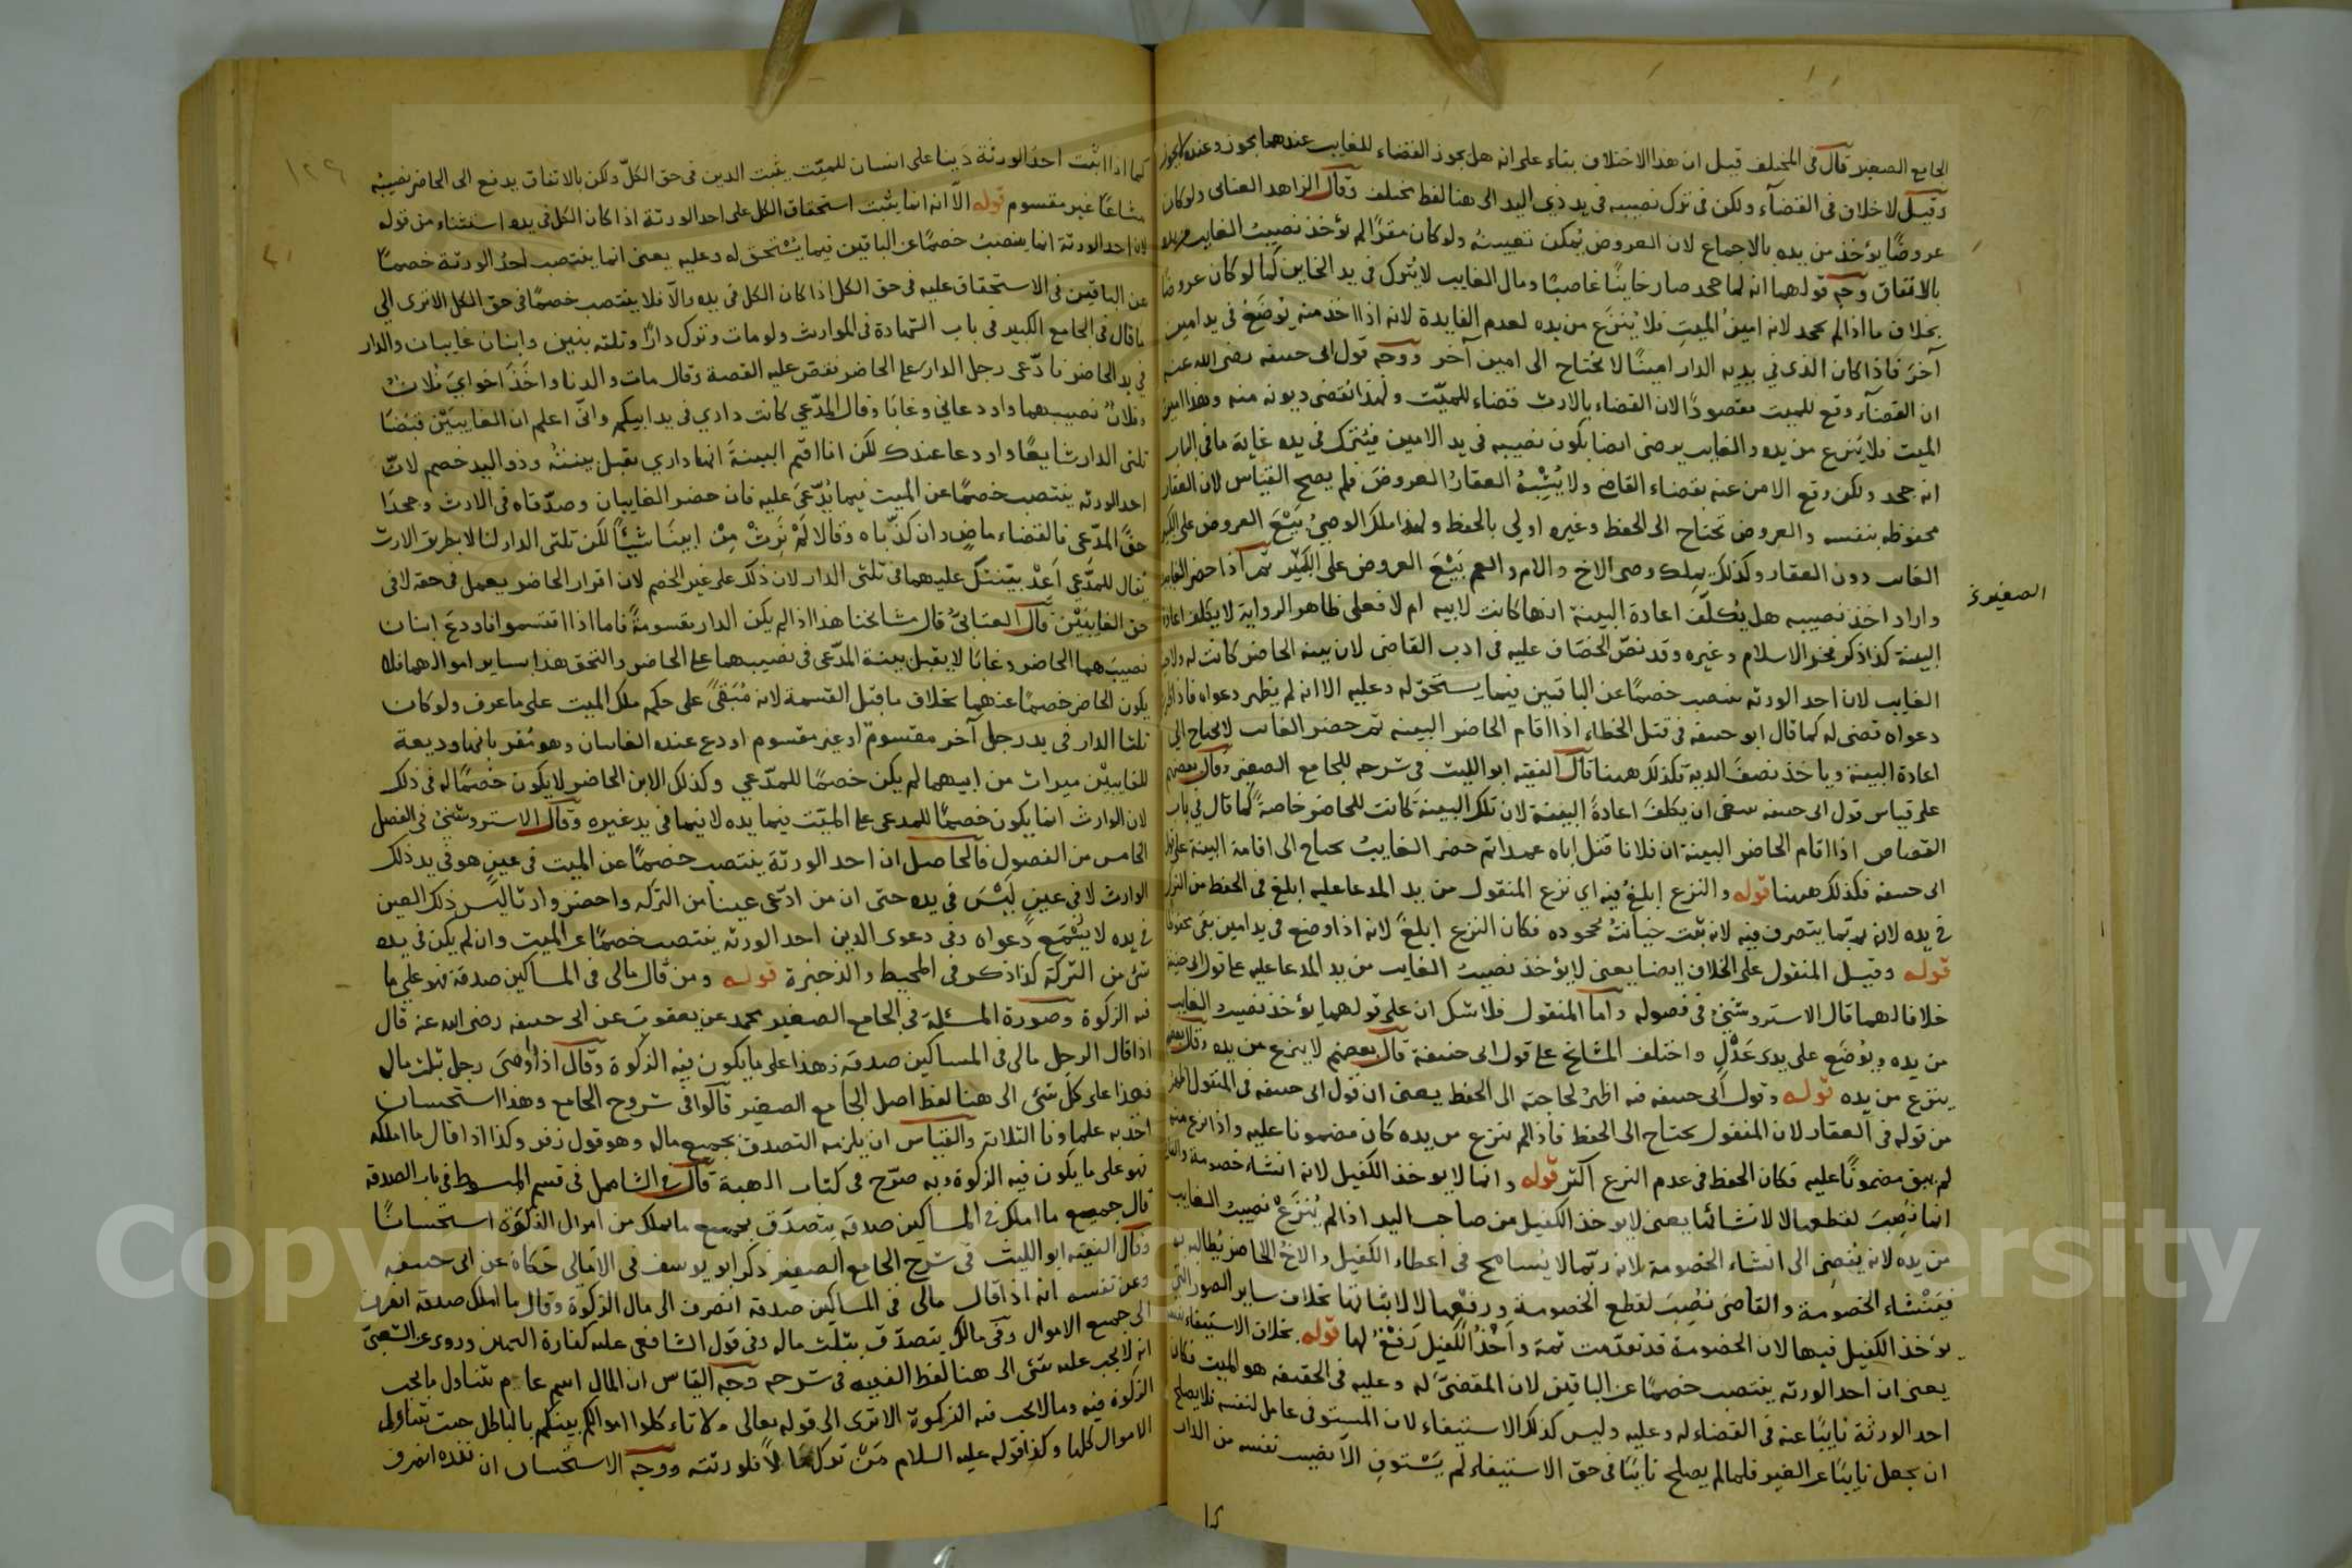 الجامع الصغير قال في المختلف قيل ان هذا الاختلاف بناء على انه هل يجوز القضاء للغايب عندهما يجوز وعنده لا يجوز
وقيل لا خلاف في القضآء ولكن في ترك نصيبه في يد ذي اليد الى هنا لفظ مختلف وقال الزاهد العتابى ولو كان
عروضًا يؤخذ من يده بالاجماع لان العروض يُمكن تعييبه ولو كان مقرًا لم يؤخذ نصيبُ الغايب من يده
بالاتفاق وجه قولهما انه لما جحد صار خاينًا غاصبًا ومال الغايب لا يُترك في يد الخاين كما لو كان عروضًا
بخلاف ما اذا لم يجحد لانه امينُ الميت فلا يُنزَع من يده لعدم الفايدة لانه اذا اخذ منه يُوضَعُ في يد امين
آخرَ فاذا كان الذي في يديه الدار امينًا لا يُحتاج الى امين آخر ووجه قول ابى حنيفه رضى الله عنه
ان القضآء وقع للميت مقصودًا لان القضاء بالارث قضاء للميّت ولهذا تُقضى ديونه منه وهذا امين
الميت فلا يُنزع من يده والغايب يرضى ايضا بكون نصيبه في يد الامين فيُترك في يده غاية ما في الباب
انه جحد ولكن وقع الامن عنه بقضاء القاضي ولا يُشْبِهُ العقارُ العروضَ فلم يصح القياس لان العقار
محفوظه بنفسه والعروض تحتاج الى الحفظ وغيره اولي بالحفظ ولهذا ملك الوصيُ بَيْعَ العروض على الكبير
الغايب دون العقار وكذلك يملك وصى الاخ والام والعم بَيْعَ العروض على الكبير ثم اذا حضر الغايب
واراد اخذ نصيبه هل يُكلّف اعادة البينة انها كانت لابيه ام لا فعلى ظاهر الرواية لا يُكلف اعادة
البينة كذا ذكر فخر الاسلام وغيره وقد نصّ الخصّاف عليه في ادب القاضى لان بينه الحاضر كانت له ولاخيه
الغايب لان احد الورثه ينتصب خصمًا عن الباقين فيما يستحق له وعليه الا انه لم يظهر دعواه فاذا
دعواه قضى له كما قال ابو حنيفه في قتل الخطاء اذا اقام الحاضر البينه ثم حضر الغايب لا يحتاج الى
اعادة البينة وياخذ نصفَ الدية فكذلك ههنا قال الفقيه ابو الليث في شرحه للجامع الصغير وقال بعضهم
على قياس قول ابى حنيفه ينبغى ان يكلفَ اعادةَ البينة لان تلك البينة كانت للحاضر خاصةً كما قال في باب
القصاص اذا اقام الحاضر البينة ان فلانا قتل اباه عمدا ثم حضر الغايبُ يحتاج الى اقامة البينة على قول
ابى حنيفه فكذلك ههنا قوله والنزع ابلغُ فيه اي نزع المنقول من يد المدعا عليه ابلغ في الحفظ من الترك
في يده لانه ربّما يتصرف فيه لانه ثبت خيانتُه بجحوده فكان النزع ابلغ لانه اذا وضع في يد امين بقى محفوظا
قوله وقيل المنقول على الخلاف ايضا يعنى لا يؤخذ نصيبُ الغايب من يد المدعا عليه على قول ابى حنيفه
خلافا لهما قال الاستروشني في فصوله واما المنقول فلا شك ان على قولهما يؤخذ نصيب الغايب
من يده ويُوضَع على يدى عَدْلٍ واختلف المشايخ على قول ابى حنيفة قال بعضهم لا ينزع من يده وقال بعضهم
ينزع من يده قوله وقول ابى حنيفه فيه اظهرُ لحاجته الى الحفظ يعنى ان قول ابى حنيفه في المنقول اظهر
من قوله في العقار لان المنقول يحتاج الى الحفظ فاذا لم ينزع من يده كان مضمونا عليه واذا نزع منه
لم يبق مضمونًا عليه فكان الحفظ في عدم النزع اكثر قوله وانما لا يوخذ الكفيل لانه انشاء خصومة والقاضي
انما نُصِبَ لقطعها لا لانشائها يعنى لا يوخذ الكفيل من صاحب اليد اذا لم يُنزَعْ نصيب الغايب
من يده لانه يُفضِى الى انشاء الخصومة لانه ربّما لا يُسامح في اعطاء الكفيل والاخُ الحاضر يُطالبه به
فيَنْشَاء الخصومة والقاضى نُصِبَ لقطع الخصومة ورفعها لا لاثباتها بخلاف ساير الصور التي
يؤخذ الكفيل فيها لان الخصومة قد تقدّمت ثمة واَخْذُ الكفيل رَفْعٌ لها قوله بخلاف الاستيفاء لنفسه
يعنى ان احد الورثه ينتصب خصمًا عن الباقين لان المقضىَّ له وعليه في الحقيقه هو الميت فكان
احد الورثة نايبًا عنه في القضاء له وعليه وليس كذلك الاستيفاء لان المستوفى عامل لنفسه فلا يصلح
ان يجعل نايبًا عن الغير فلما لم يصلح نايبًا في حق الاستيفاء لم يَسْتوفِ الا نصيب نفسه من الذات
الصغير
كما اذا اثبت احدُ الورثة دَينا على انسان للميّت يثبت الدين في حق الكلّ ولكن بالاتفاق يدفع الى الحاضر نصيبُه
مشاعًا غير مقسوم قوله الاّ انه انما يثبت استحقاق الكل على احد الورثة اذا كان الكل في يده استثناء من قوله
لان احد الورثة انما ينتصبُ خصمًا عن الباقين فيما يُسْتحق له وعليه يعنى انما ينتصب احدُ الورثة خصمًا
عن الباقين في الاستحقاق عليه في حق الكل اذا كان الكل في يده والاّ فلا ينتصب خصمًا في حق الكل الا ترى الي
ما قال في الجامع الكبير في باب الشهادة في المواريث ولو مات وترك دارًا وثلثه بنين وابنان غايبان والدار
في يد الحاضر فادّعى رجل الدار على الحاضر فقصّ عليه القصة وقال مات والدنا واخَذَ اخوايَ فُلانٌ
وفلانٌ نصيبهما واودعاني وغابَا وقال المدّعي كانت داري في يد ابيكم وانّي اعلم ان الغايبَيْن قبَضَا
ثلثى الدار شايعًا واودعا عندك لكن انا اقيم البينةَ انها داري يقبل بينتُه وذو اليد خصم لانّ
احد الورثه ينتصب خصمًا عن الميت فيما يُدّعىَ عليه فان حضر الغايبان وصدّقاه في الارث وجحدَا
حقَّ المدّعى فالقضاء ماضٍ وان كذّباه وقالا لَمْ نَرِثْ مِنْ ابينَا شيئًا لكن ثلثى الدار لنا لا بطريق الارث
يُقال للمدَّعي اَعِدْ بيّنتكَ عليهما في ثلثى الدار لان ذلك على غير الخصم لان اقرار الحاضر يعمل في حقه لا في
حق الغايبَيْن قال العتابىُّ قال مشايخنا هذا اذا لم يكن الدار مقسومةً فاما اذا اقتسموا فاودعَ ابنان
نصيبَهما الحاضر وغابَا لا يقبل بينة المدّعى في نصيبهما على الحاضر والتحق هذا بساير اموالهما فلا
يكون الحاضر خصمًا عنهما بخلاف ما قبل القسمة لانه مُبَقىً على حكم ملك الميت على ما عرف ولو كان
ثلثا الدار في يد رجل آخر مقسوم او غير مقسوم اودع عنده الغايبان وهو مُقر بانها وديعة
للغايبيْن ميراث من ابيهما لم يكن خصمًا للمدّعي وكذلك الابن الحاضر لا يكون خصمًا له في ذلك
لان الوارث انما يكون خصمًا للمدعى على الميّت فيما يده لا فيما في يد غيره وقال الاستروشنيُ في الفصل
الخامس من الفصول فالحاصل ان احد الورثة ينتصب خصمًا عن الميت في عينٍ هو في يد ذلك
الوارث لا في عين لَيْسَ في يده حتى ان من ادّعى عينا من التركه واحضر وارثا ليس ذلك العين
في يده لا يُسْمَع دعواه وفي دعوى الدين احد الورثه ينتصب خصمًا عن الميت وان لم يكن في يده
شئ من التركة كذا ذكر في المحيط والذخيرة قوله ومن قال مالى في المساكين صدقة فهو على ما
فيه الزكوة وصورة المسئلة في الجامع الصغير محمد عن يعقوبَ عن ابى حنيفه رضى الله عنه قال
اذا قال الرجل مالى في المساكين صدقة فهذا على ما يكون فيه الزكوة وقال اذا اوصَى رجل بثلث مال
فهذا على كلّ شئ الى هنا لفظ اصل الجامع الصغير قالوا في شروح الجامع وهذا استحسان
اخذ به علماونا الثلاثه والقياس ان يلزمه التصدق بجميع ماله وهو قول زفر وكذا اذا قال ما املكه
فهو على ما يكون فيه الزكوة وبه صرّح في كتاب الهبة قال في الشامل في قسم المبسوط في باب الصدقه
قال جميع ما املك في المساكين صدقة يتصدّق بجميع ما يملك من اموال الذكوة استحسانًا
وقال الفقيه ابو الليث في شرح الجامع الصغير ذكر ابو يوسف في الامَالِى حَكاهُ عن ابى حنيفه
وعن نفسه انه اذا قال مالى في المساكين صدقة انصرف الى مال الزكوة وقال ما املك صدقة انصرف
الى جميع الاموال وفي مالك يتصدّق بثلث ماله وفي قول الشافعى عليه كفارة اليمين وروى عن الشعبىّ
انه لا يجب عليه شئ الى هنا لفظ الفقيه في شرحه وجه القياس ان المال اسم عام يتناول ما يجب
الزكوة فيه وما لا يجب فيه الزكوة الا ترى الى قوله تعالى ولا تاءكلوا اموالكم بينكم بالباطل حيث تتناول
الاموال كلها وكذا قوله عليه السلام مَنْ ترك مَالاً فلورثته ووجه الاستحسان ان نفده انصرف
Copyright © King Saud University